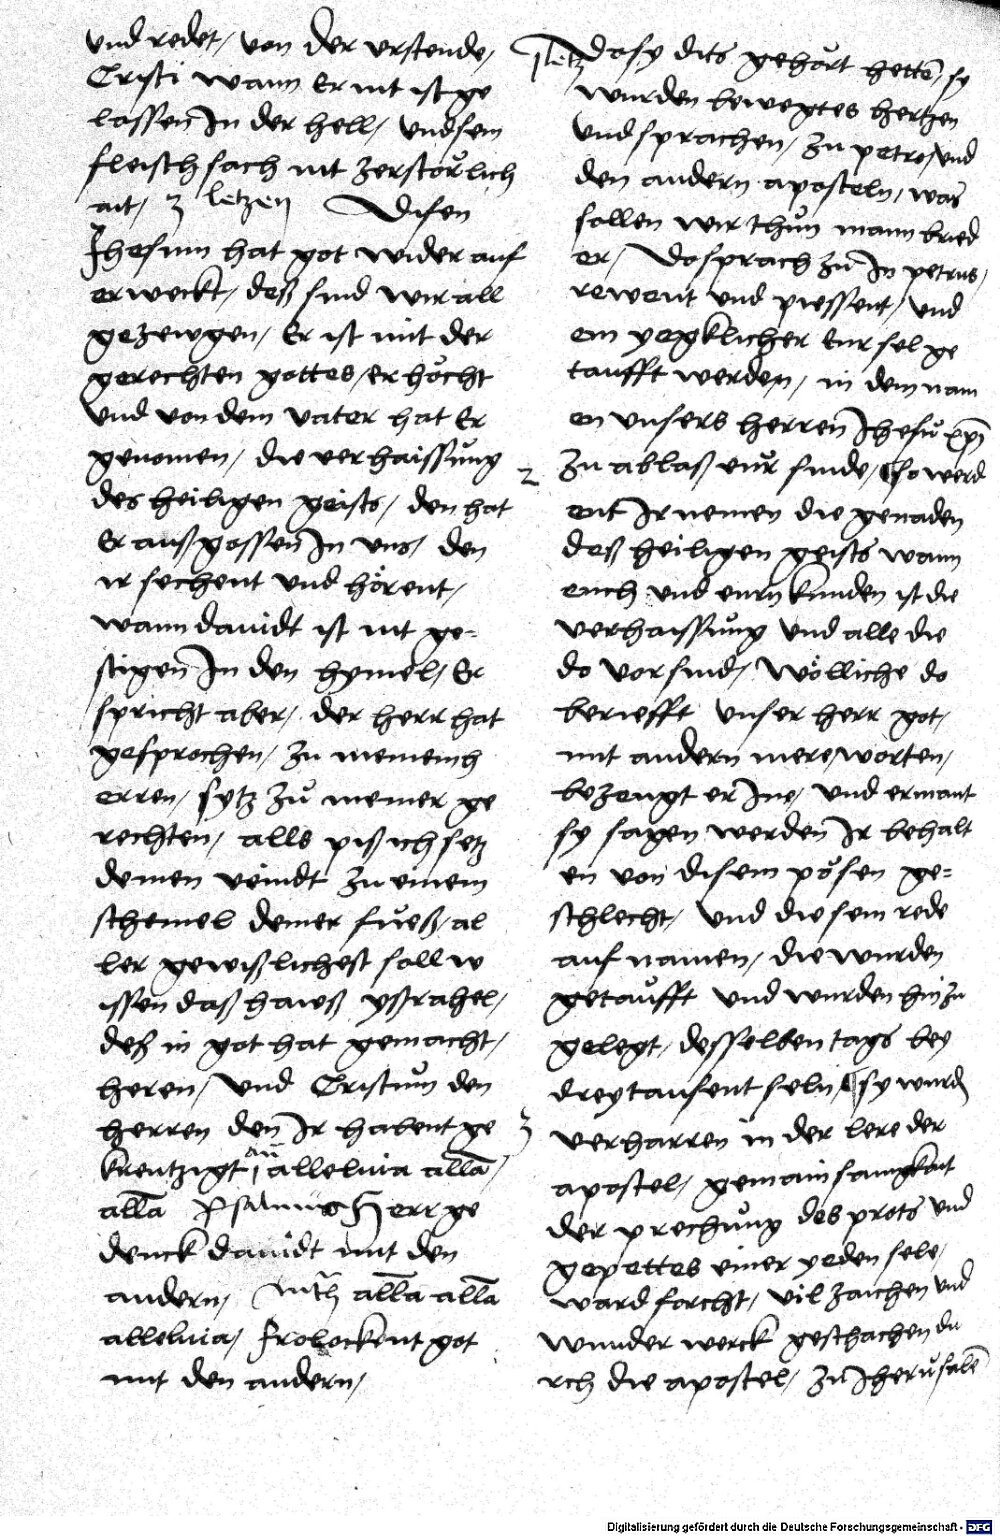 vnd redet/ von der vrstende/
Cristi wann Er nit ist ge
lassen In der hell/ vnd sein
fleisch sach nit zerstörlich
ait/ 3 letzen Disen
Jhesum hat got wider auf
erweckt/ deß sind wir all
gezewgen/ Er ist mit der
gerechten gottes/ erhöcht
vnd von dem vater hat Er
genomen/ die verhaissung
des heiligen geists/ den hat
Er außgossen In vns/ den
ir sechent vnd hörent/
wann dauidt ist nit ge=
stigen In den hymel/ Er
spricht aber/ der herr hat
gesprochen/ zu meinem h
erren/ sytz zů meiner ge
rechten/ alls piß ich setz
deinen veindt zu einem
schemel deiner fueß/ al
ler gewißlichest soll w
issen daß hawß yssrahel/
deß in got hat gemacht/
heren/ vnd Cristum den
herren den Ir habent ge
kreutzigt añ alleluia alla/
alla Psalmus Herr ge
denck dauidt mit den
andern/ alla alla
alleluia/ frolockent got
mit den andern/
1 letz Do sy dits gehört hetten/ sy
wurden bewegtes hertzen
vnd sprachen/ zu petro/ vnd
den andern aposteln/ was
sollen wir thůn mann bried
er/ Do sprach zů In petrus/
rewent vnd piessent/ vnd
ein yegklicher Eur sol ge
taufft werden/ in dem nam
en vnsers herren Jhesu xpi
2 zu ablaß eur sunde/ so werd
ent Ir nemen die genaden
deß heiligen geists wann
euch vnd eurn kinden ist die
verhaissung vnd alle die
do vor sind/ wölliche do
berüefft vnser herr got/
mit andern mere/ worten/
bezeugt er Ine/ vnd ermant
sy sagen werden Ir behalt
en von disem pösen ge=
schlecht/ vnd die sein rede
auf namen/ die wurden
getaufft vnd wurden hin zu
gelegt/ desselben tags bey
dreytausent seln/ sy wurdn
3 verharren in der lere der
apostel/ gemainsamgkait
der prechung des prots vnd
gepettes einer yeden sele/
ward forcht/ vil zaichen vnd
wunder werck geschachen du
rch die apostel/ zu Jherusalē
Digitalisierung gefördert durch die Deutsche Forschungsgemeinschaft - DFG